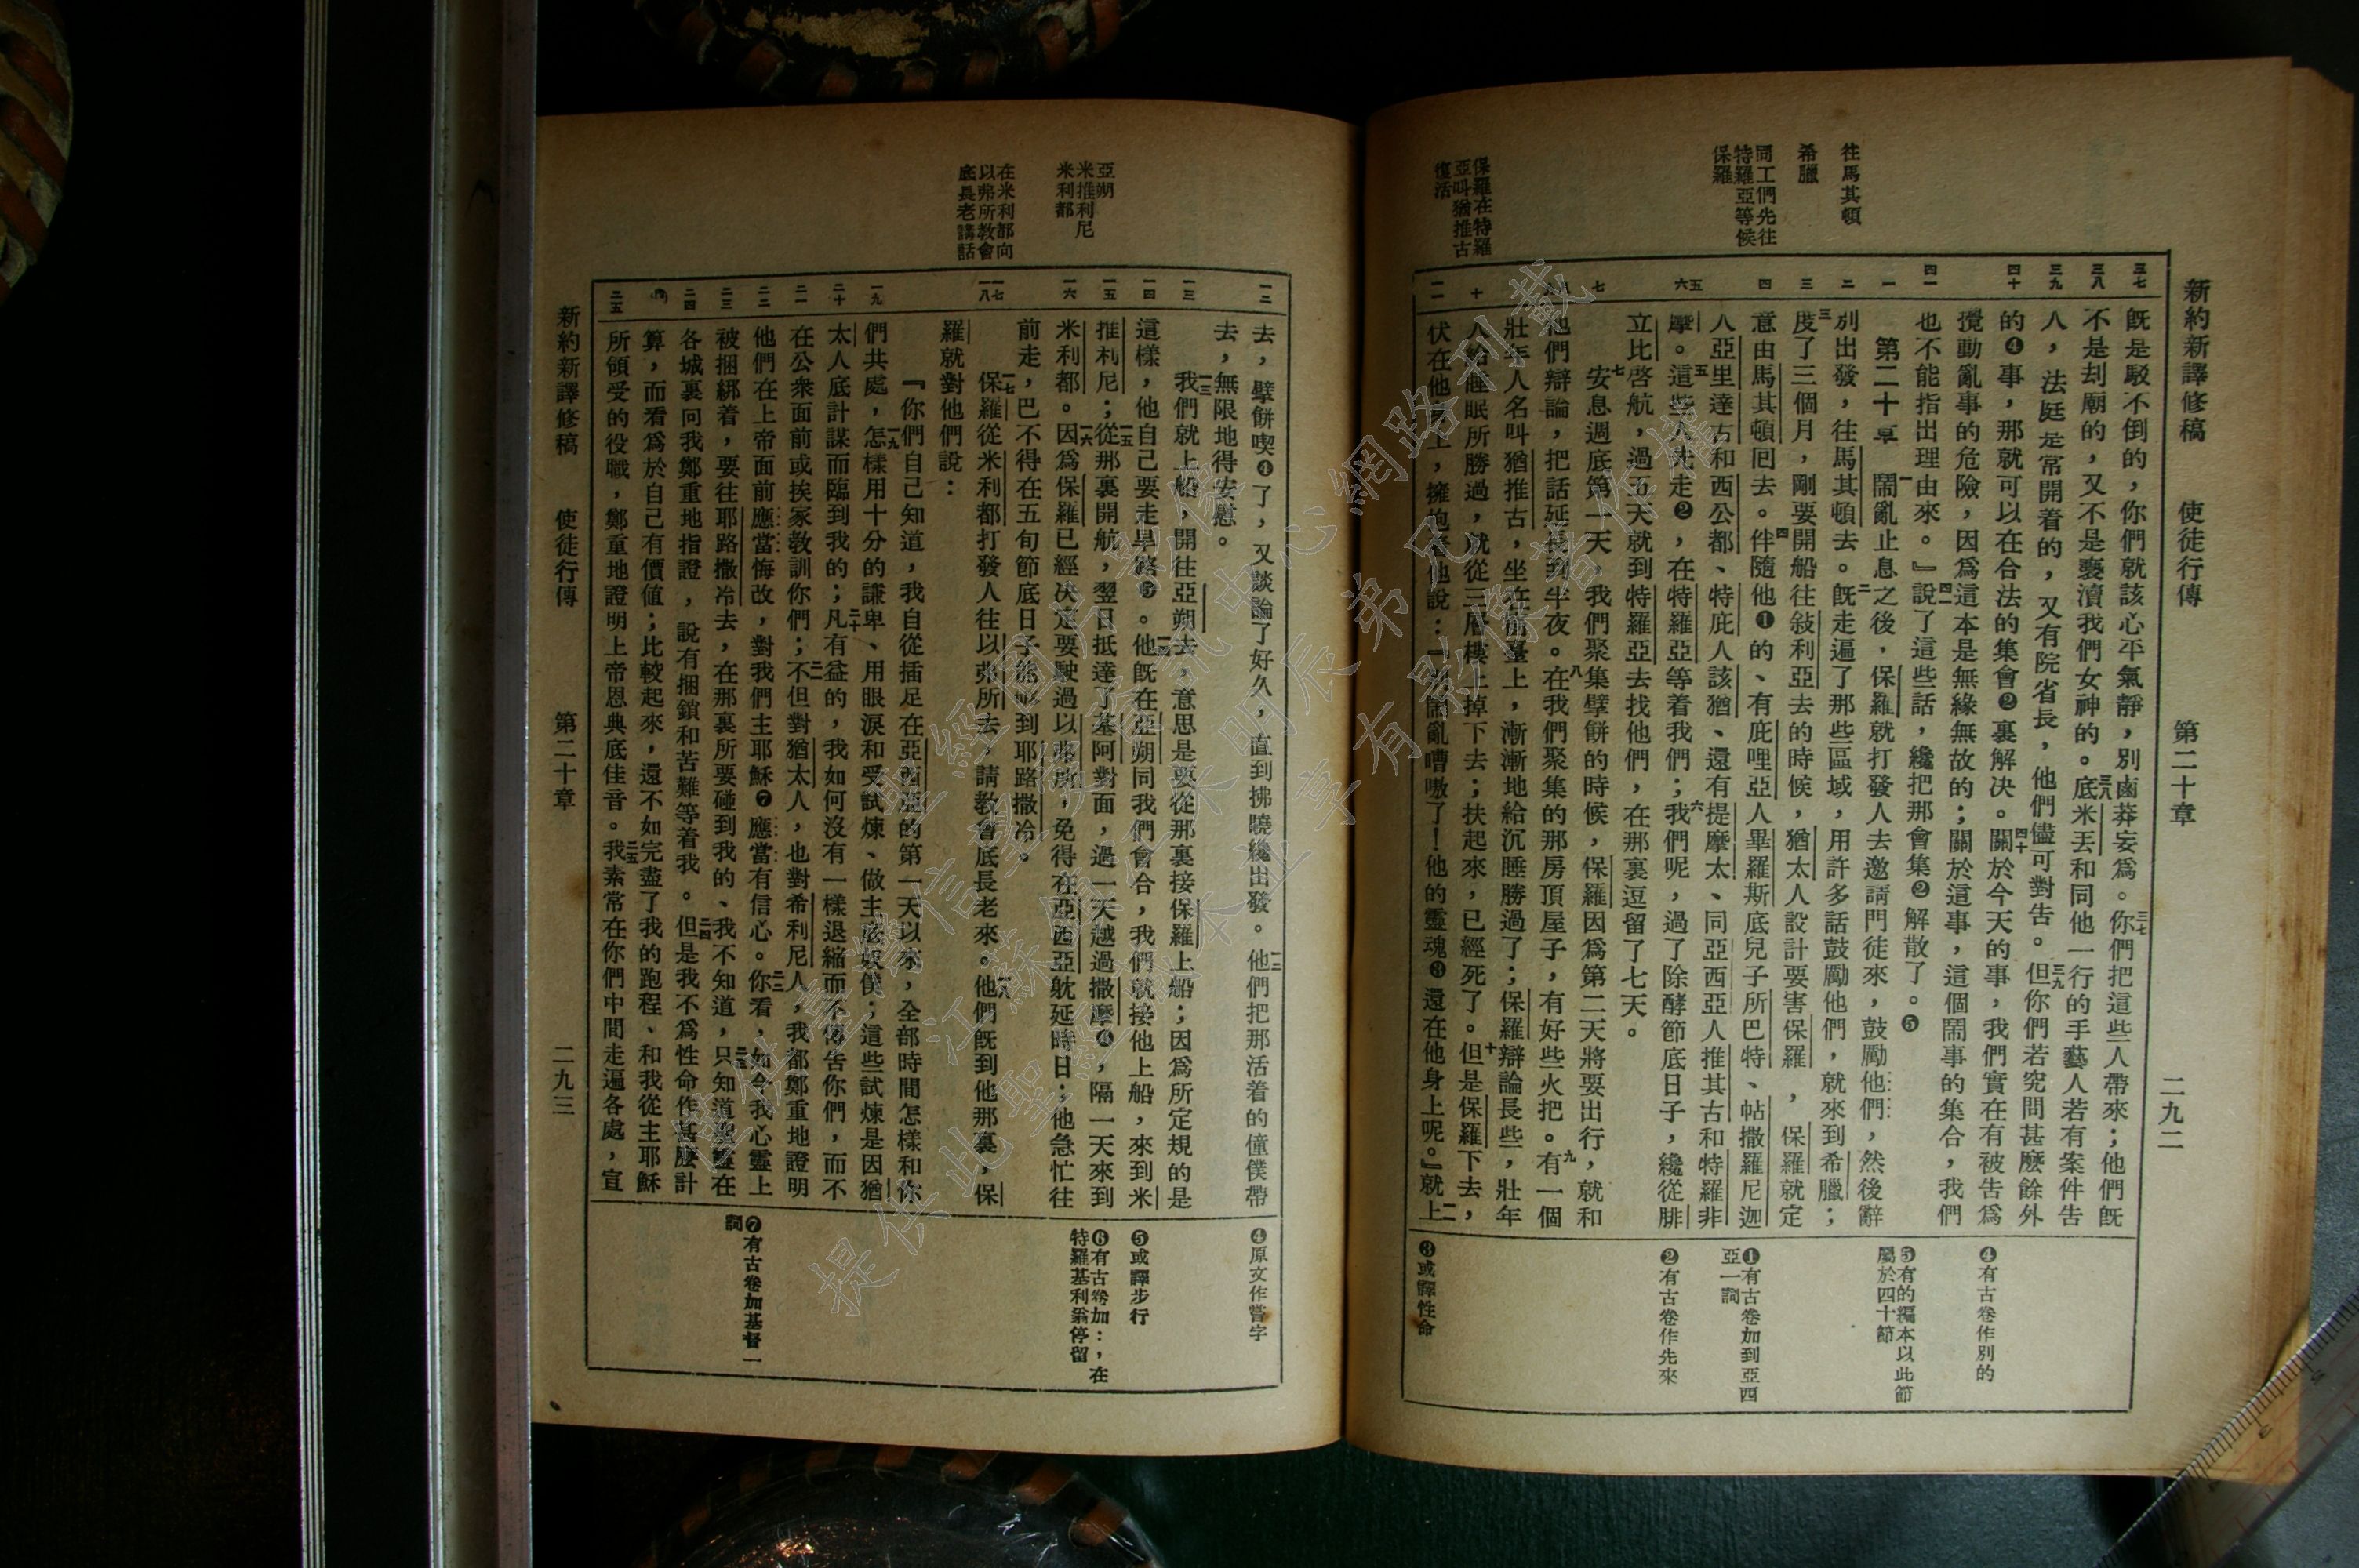 新約新譯修稿 使徒行傳 第二十章 二九二
往馬其頓
希臘
同工們先往
特羅亞等候
保羅
保羅在特羅
亞叫猶推古
復活
三七
三八
三九
四十
四一
一
二
三
四
五
六
七
八
十
二
既是駁不倒的，你們就該心平氣靜，別鹵莽妄爲。三七你們把這些人帶來；他們既
不是刦廟的，又不是褻瀆我們女神的。三八底米丟和同他一行的手藝人若有案件告
人，法庭是常開着的，又有院省長，他們儘可對告。三九但你們若究問甚麽餘外
的❹事，那就可以在合法的集會❷裏解决。四十關於今天的事，我們實在有被告爲
攪動亂事的危險，因爲這本是無緣無故的；關於這事，這個鬧事的集合，我們
也不能指出理由來。』四一說了這些話，纔把那會集❷解散了。❺
第二十章 一鬧亂止息之後，保羅就打發人去邀請門徒來，鼓勵他們，然後辭
別出發，往馬其頓去。二既走遍了那些區域，用許多話鼓勵他們，就來到希臘；
三度了三個月，剛要開船往敍利亞去的時候，猶太人設計要害保羅，保羅就定
意由馬其頓囘去。四伴隨他❶的、有庇哩亞人畢羅斯底兒子所巴特、帖撒羅尼迦
人亞里達古和西公都、特庇人該猶、還有提摩太、同亞西亞人推其古和特羅非
摩。五這些人先走❷，在特羅亞等着我們；六我們呢，過了除酵節底日子，纔從腓
立比啓航，過五天就到特羅亞去找他們，在那裏逗留了七天。
七安息週底第一天，我們聚集擘餅的時候，保羅因爲第二天將要出行，就和
他們辯論，把話延長到半夜。八在我們聚集的那房頂屋子，有好些火把。九有一個
壯年人名叫猶推古，坐在窗臺上，漸漸地給沉睡勝過了；保羅辯論長些，壯年
人給睡眠所勝過，就從三層樓上掉下去；扶起來，已經死了。十但是保羅下去，
伏在他身上，擁抱着他說：『別鬧亂嘈嗷了！他的靈魂❸還在他身上呢。』就上
❹有古卷作別的
❺有的編本以此節
屬於四十節
❶有古卷加到亞西
亞一詞
❷有古卷作先來
❸或譯性命
亞朔
米推利尼
米利都
在米利都向
以弗所教會
底長老講話
一二
一三
一四
一五
一六
一七
一八
一九
二十
二一
二二
二三
二四
二五
去，擘餅喫❹了，又談論了好久，直到拂曉纔出發。一二他們把那活着的僮僕帶
去，無限地得安慰。
一三我們就上船，開往亞朔去，意思是要從那裏接保羅上船；因爲所定規的是
這樣，他自己要走旱路❺。一四他既在亞朔同我們會合，我們就接他上船，來到米
推利尼；一五從那裏開航，翌日抵達了基阿對面，過一天越過撒摩❻，隔一天來到
米利都。一六因爲保羅已經决定要駛過以弗所，免得在亞西亞躭延時日；他急忙往
前走，巴不得在五旬節底日子能够到耶路撒冷。
一七保羅從米利都打發人往以弗所去，請教會底長老來。一八他們既到他那裏，保
羅就對他們說：
『你們自己知道，我自從插足在亞西亞的第一天以來，全部時間怎樣和你
們共處，一九怎樣用十分的謙卑、用眼淚和受試煉、做主底奴僕；這些試煉是因猶
太人底計謀而臨到我的；二十凡有益的，我如何沒有一樣退縮而不傳告你們，而不
在公衆面前或挨家教訓你們；二一不但對猶太人，也對希利尼人，我都鄭重地證明
他們在上帝面前應當悔改，對我們主耶穌❼應當有信心。二二你看，如今我心靈上
被捆綁着，要往耶路撒冷去，在那裏所要碰到我的、我不知道，二三只知道聖靈在
各城裏向我鄭重地指證，說有捆鎖和苦難等着我。二四但是我不爲性命作甚麽計
算，而看爲於自己有價值；比較起來，還不如完盡了我的跑程、和我從主耶穌
所領受的役職，鄭重地證明上帝恩典底佳音。二五我素常在你們中間走遍各處，宣
❹原文作嘗字
❺或譯步行
❻有古卷加：，在
特羅基利翁停留
❼有古卷加基督一
詞
新約新譯修稿 使徒行傳 第二十章 二九三
僅供臺灣信望愛資訊中心網路刊載
提供此聖經版本並享有影像著作權